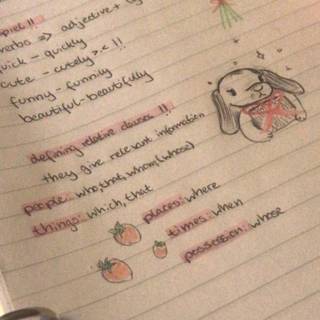 spiel !!
verbs => adjective +
quick - quickly
cute - cutely >.< !!
funny - funnily
beautiful - beautifully
defining relative clauses !!
they give relevant information
people: who, that, whom, (whose)
things: which, that
places: where
times: when
possession: whose